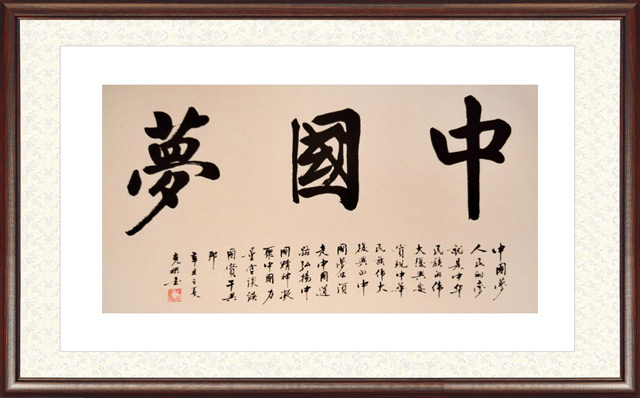 中國夢
中國夢
人民的夢
就是中华
民族的伟
大復興要
實現中華
民族伟大
復興的中
國夢必須
走中國道
路弘揚中
國精神凝
聚中國力
量空談誤
國實干興
邦
辛丑之夏